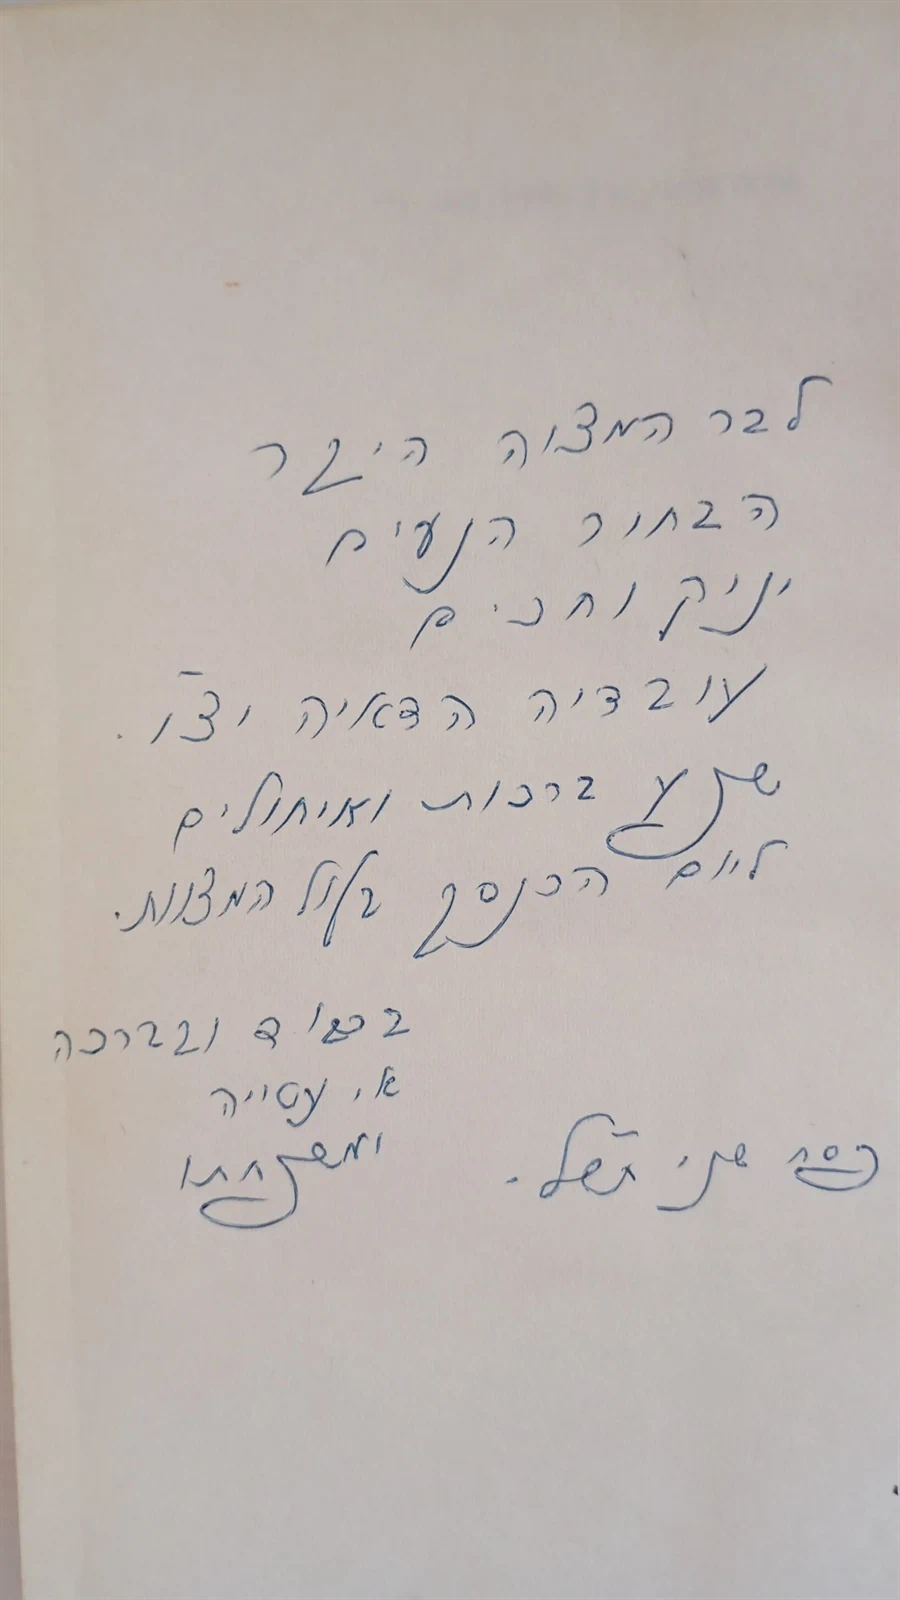 לבר המצוה היקר
הבחור הנעים
יניק וחכים
עובדיה הדאיה יצ"ו.
שפע ברכות ואיחולים
ליום הכנסך בעול המצוות.
בכבוד ובברכה
א. עטייה
ומשפחתו
פסח שני תש"ל.